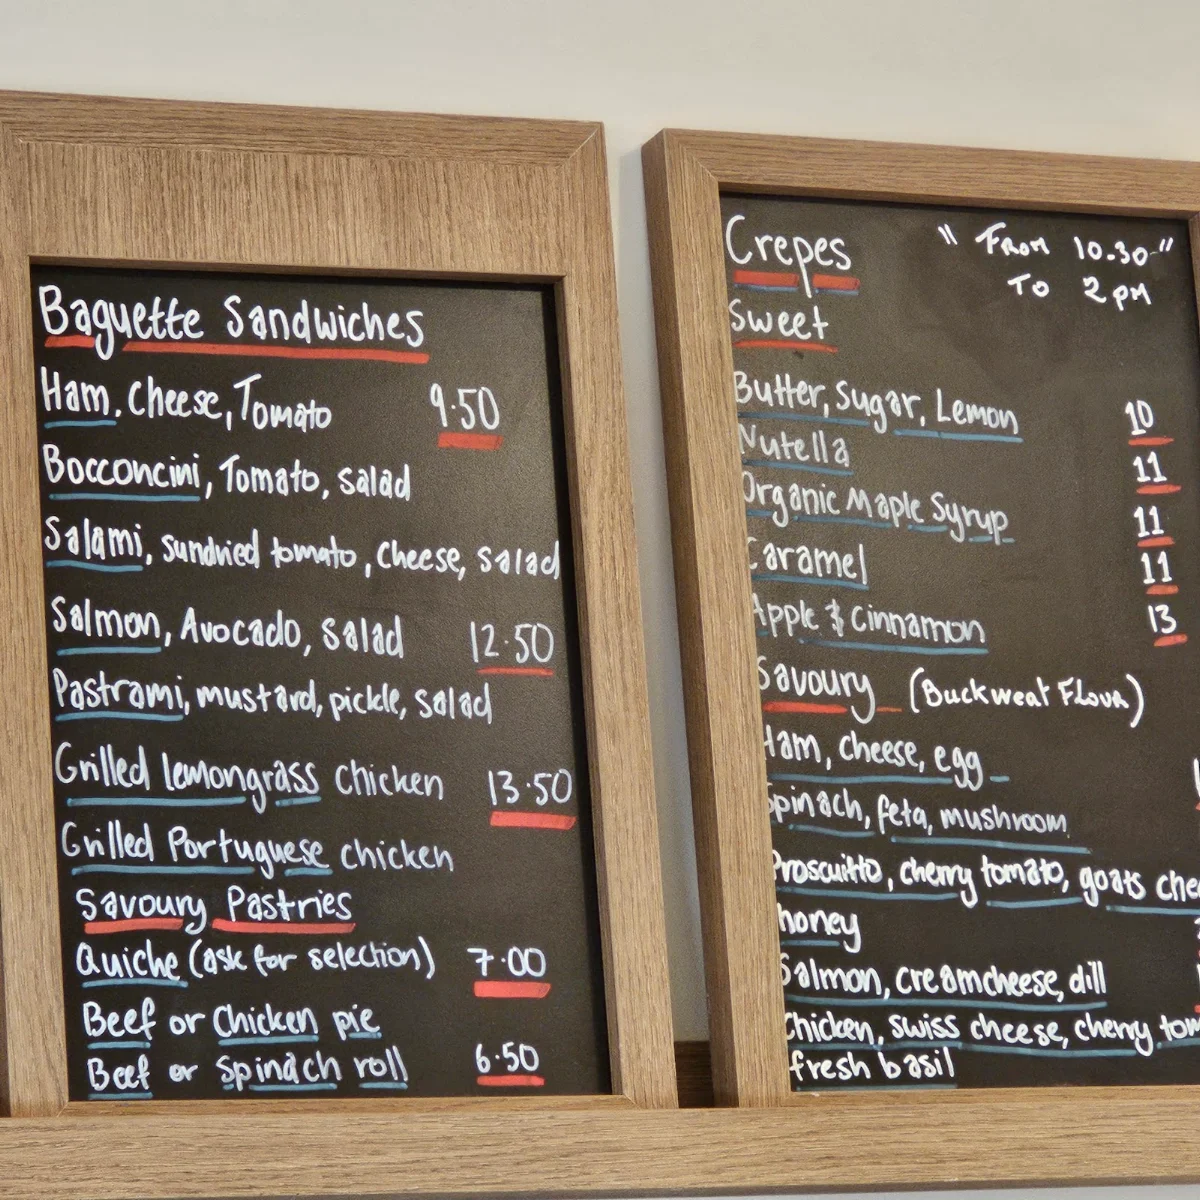 Baguette Sandwiches
Ham, Cheese, Tomato 9.50
Bocconcini, Tomato, salad
Salami, sundried tomato, cheese, salad
Salmon, Avocado, salad 12.50
Pastrami, mustard, pickle, salad
Grilled lemongrass chicken 13.50
Grilled Portuguese chicken
Savoury Pastries
Quiche (ask for selection) 7.00
Beef or Chicken pie
Beef or spinach roll 6.50
Crepes "From 10.30"
To 2pm
Sweet
Butter, Sugar, Lemon 10
Nutella 11
Organic Maple Syrup 11
Caramel 11
Apple & Cinnamon 13
Savoury (Buckweat Flour)
Ham, cheese, egg
Spinach, feta, mushroom
Proscuitto, cherry tomato, goats chee
honey
Salmon, creamcheese, dill
Chicken, swiss cheese, cherry tom
fresh basil